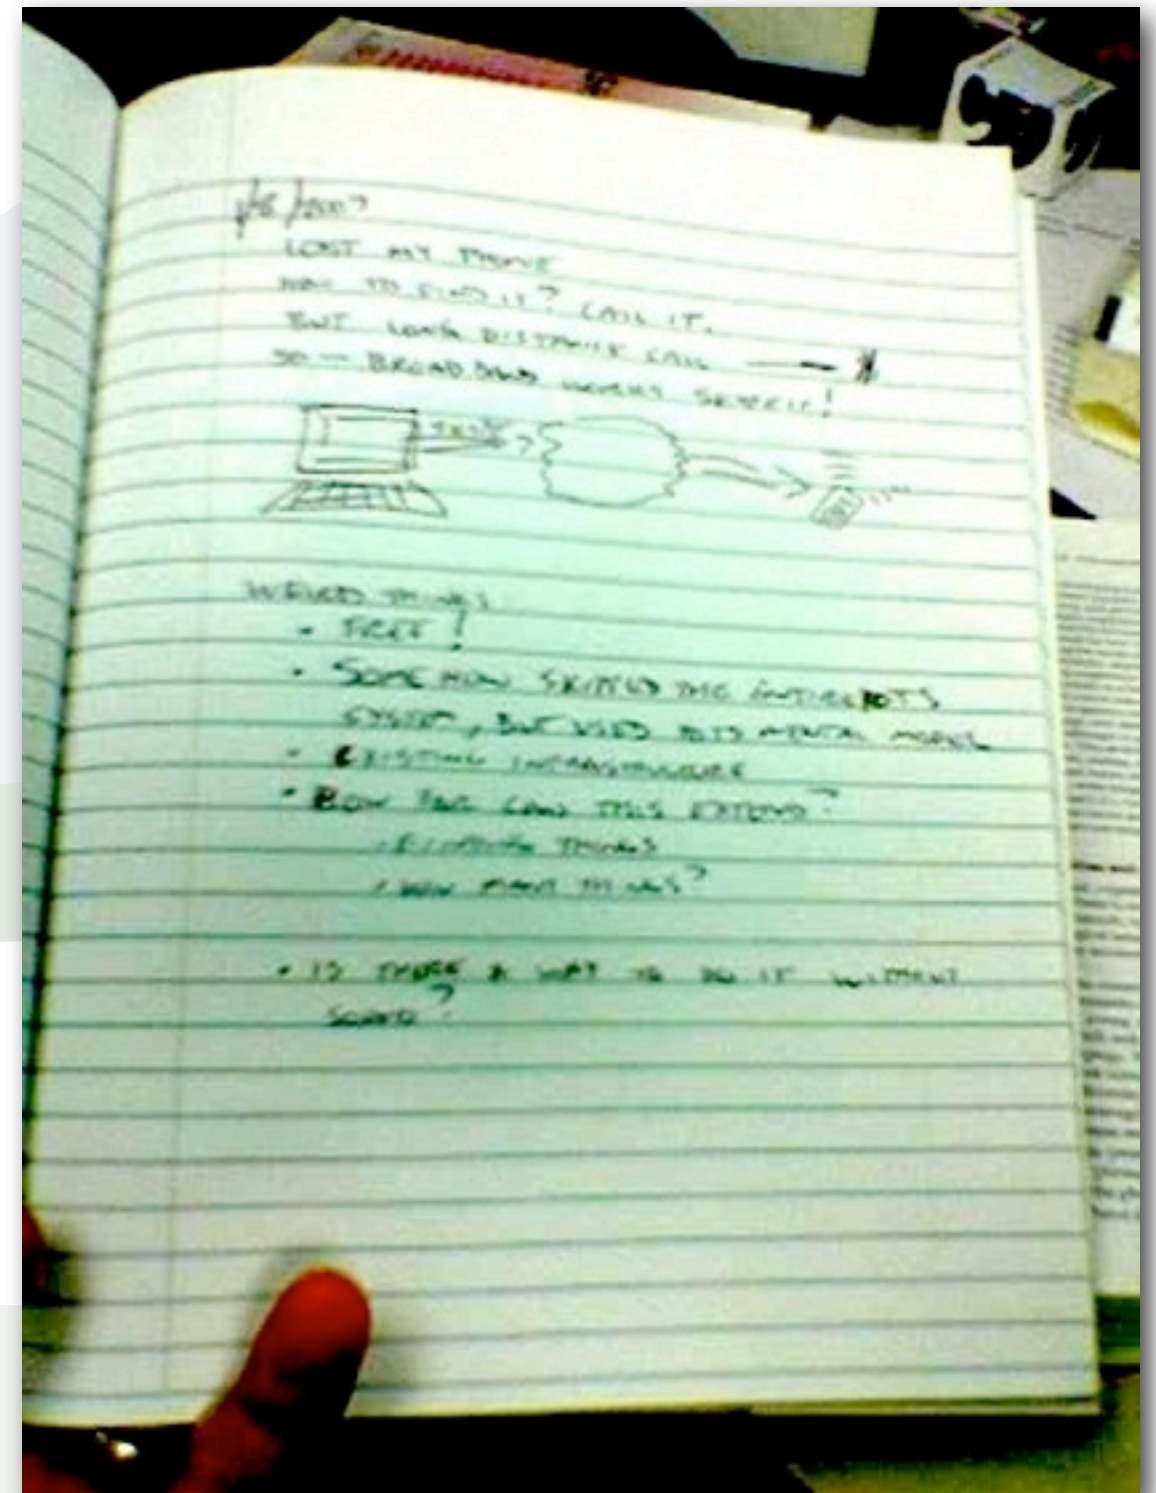 /2007
LOST MY PHONE
HOW TO FIND IT? CALL IT.
BUT LONG DISTANCE CALL — $
SO — BROADBAND !
THINGS
• FREE!
• SOMEHOW SKIPPED THE ENTIRE POTS
SYSTEM, BUT USED POTS MENTAL MODEL
• EXISTING INFRASTRUCTURE
• HOW FAR CAN THIS EXTEND?
• THINGS
• HOW MANY THINGS?
• IS THERE A WAY TO DO IT WITHOUT
SOUND?